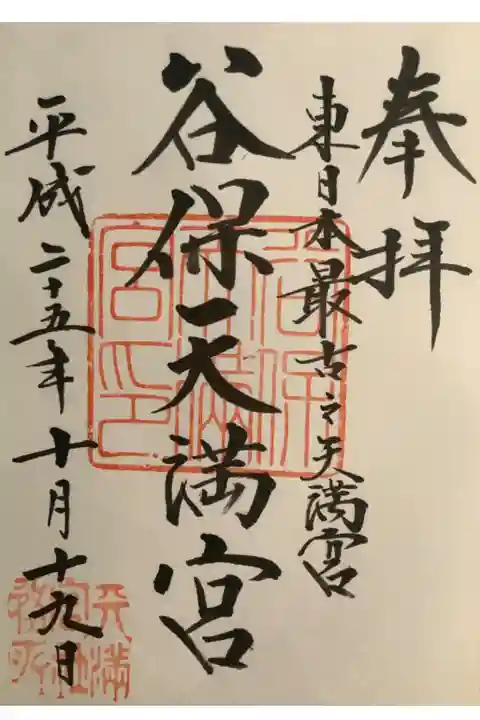 奉拝
東日本最古之天満宮
谷保天満宮
平成二十五年十月十九日